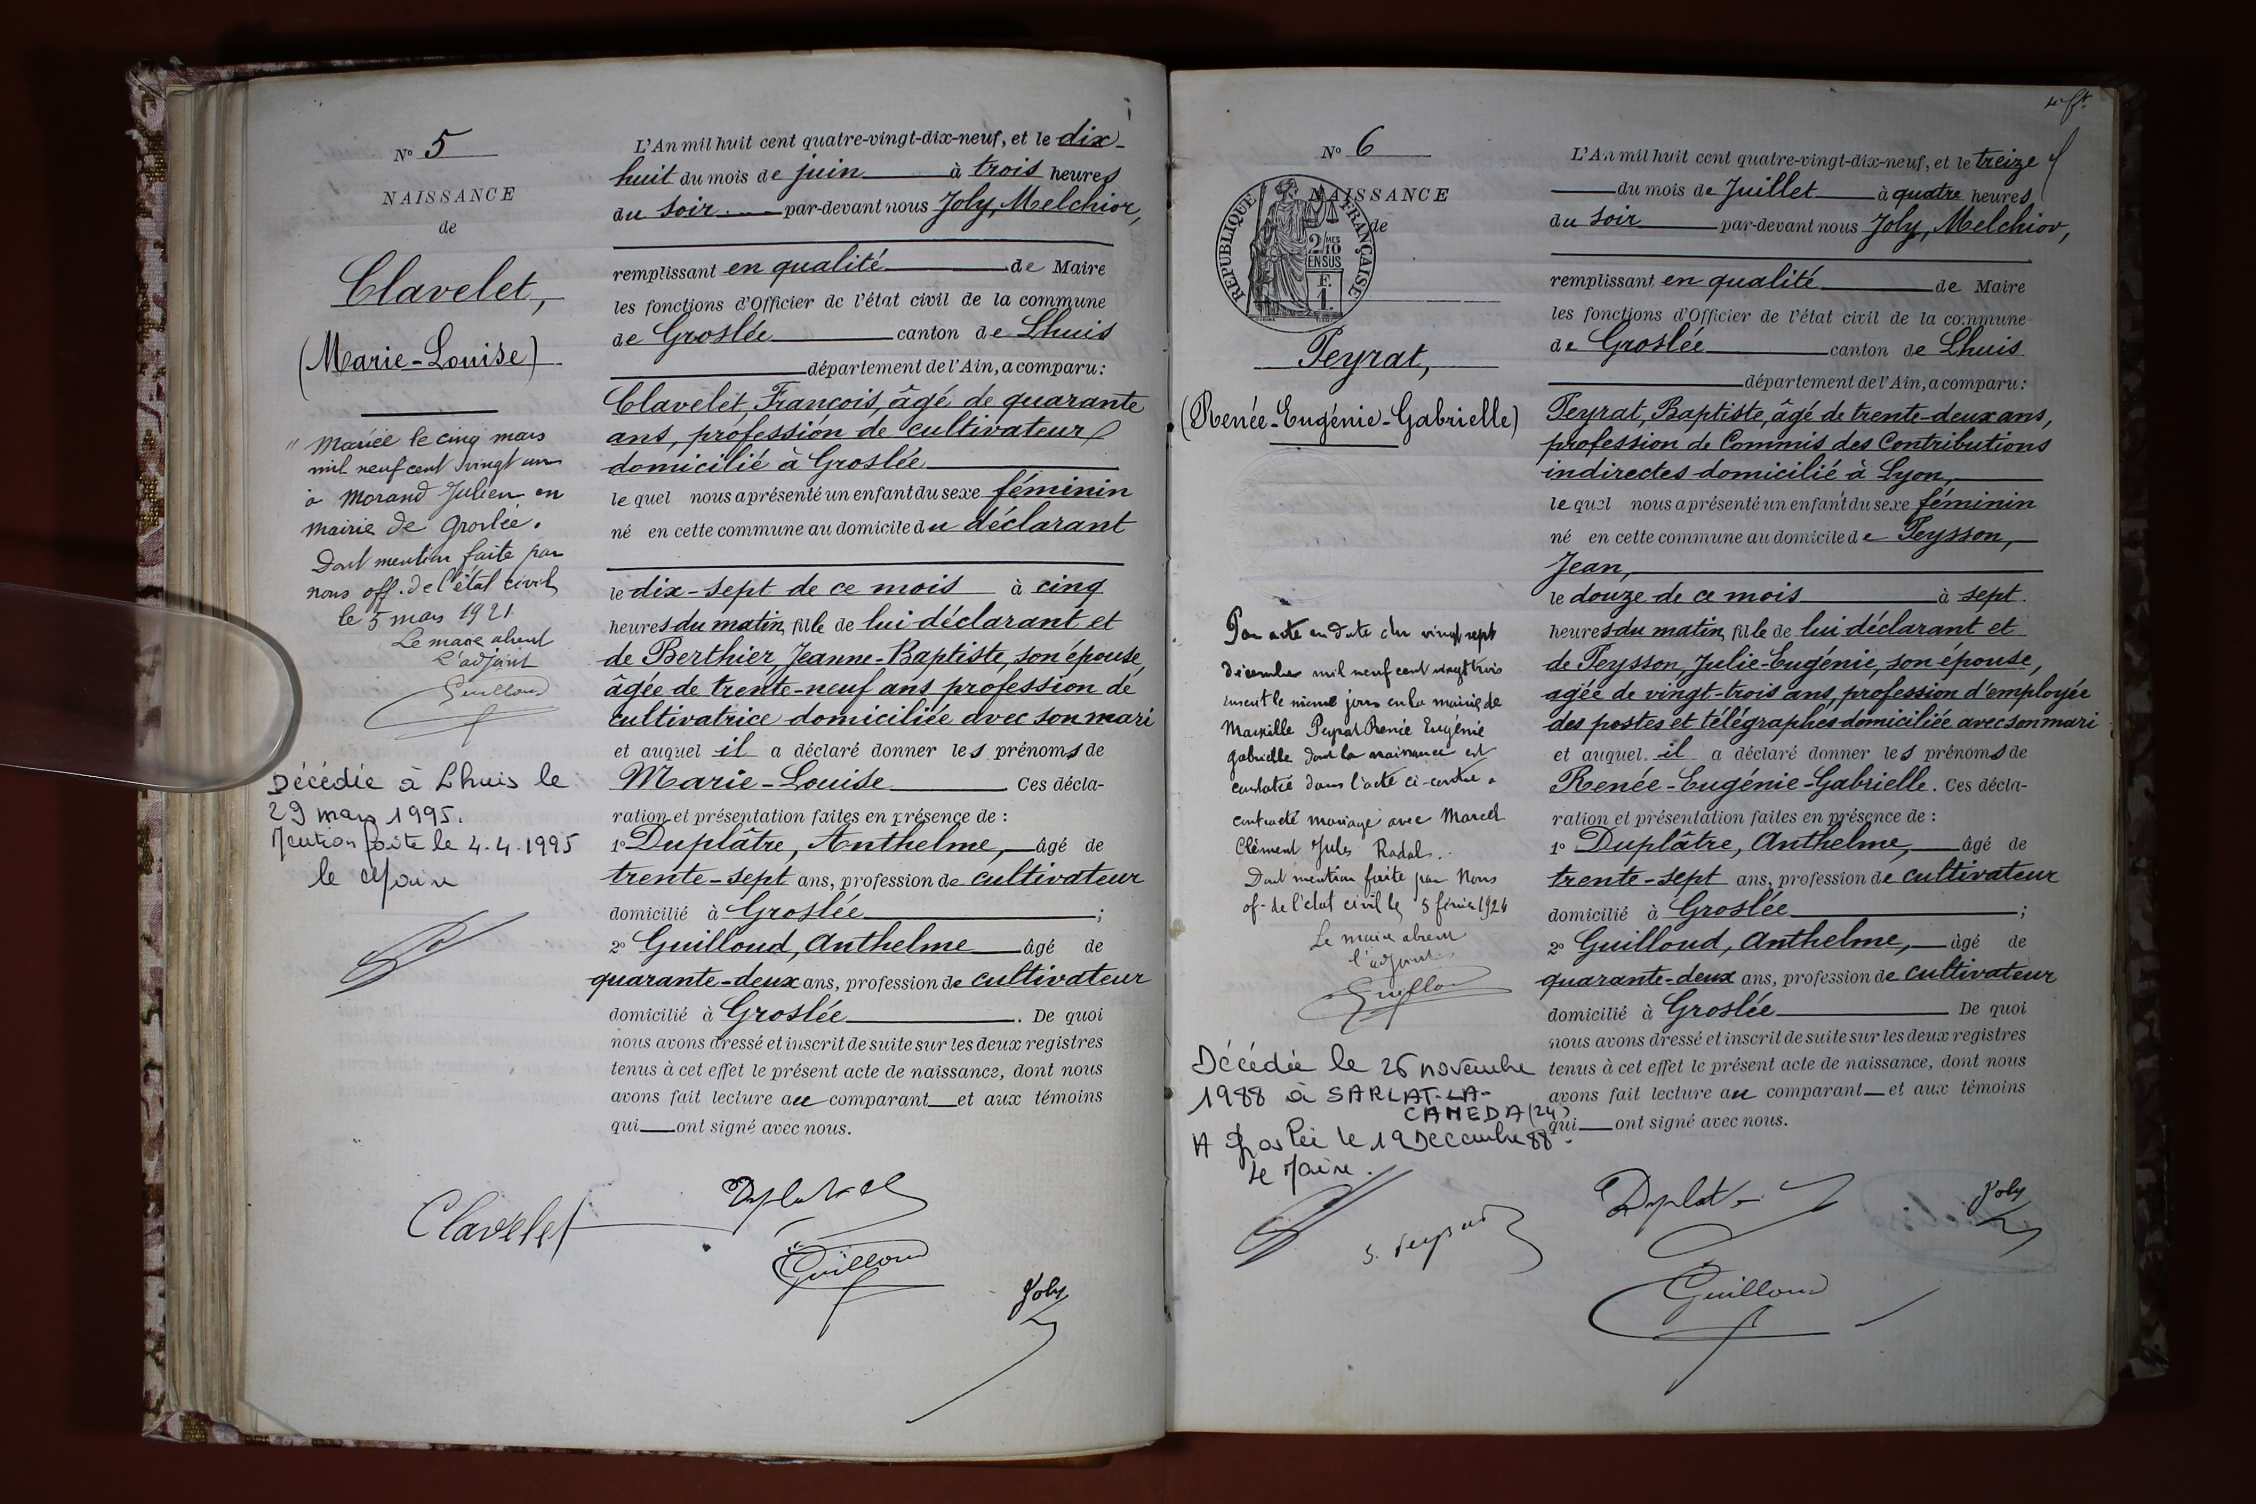 N° 5
NAISSANCE
de
Clavelet,
(Marie-Louise)
" Mariée le cinq mars
mil neuf cent vingt un
à Morand Julien en
mairie de Groslée.
Dont mention faite par
nous off. de l'état civil
le 5 mars 1921.
Le maire absent
l'adjoint
Guilloud
Décédée à Lhuis le
29 mars 1995.
Mention faite le 4.4.1995
le Maire
L'An mil huit cent quatre-vingt-dix-neuf, et le dix-
huit du mois de juin à trois heures
du soir par-devant nous Joly, Melchior,
remplissant en qualité de Maire
les fonctions d'Officier de l'état civil de la commune
de Groslée canton de Lhuis
département de l'Ain, a comparu:
Clavelet, François, âgé de quarante
ans, profession de cultivateur
domicilié à Groslée
le quel nous a présenté un enfant du sexe féminin
né en cette commune au domicile du déclarant
le dix-sept de ce mois à cinq
heures du matin, fille de lui déclarant et
de Berthier, Jeanne-Baptiste, son épouse,
âgée de trente-neuf ans, profession de
cultivatrice domiciliée avec son mari
et auquel il a déclaré donner les prénoms de
Marie-Louise Ces décla-
ration et présentation faites en présence de :
1° Duplâtre, Anthelme, âgé de
trente-sept ans, profession de cultivateur
domicilié à Groslée ;
2° Guilloud, Anthelme âgé de
quarante-deux ans, profession de cultivateur
domicilié à Groslée. De quoi
nous avons dressé et inscrit de suite sur les deux registres
tenus à cet effet le présent acte de naissance, dont nous
avons fait lecture au comparant et aux témoins
qui ont signé avec nous.
Clavelet Duplatre
Guilloud
Joly
N° 6
NAISSANCE
de
RÉPUBLIQUE FRANÇAISE
2/10 MES
EN SUS
F.
1.
Peyrat,
(Renée-Eugénie-Gabrielle)
Par acte en date du vingt sept
décembre mil neuf cent vingt trois
inscrit le même jour en la mairie de
Marseille Peyrat Renée Eugénie
Gabrielle dont la naissance est
constatée dans l'acte ci-contre a
contracté mariage avec Marcel
Clément Jules Radal.
Dont mention faite par Nous
of. de l'état civil le 5 février 1924
Le maire absent
l'adjoint
Guilloud
Décédée le 26 novembre
1988 à SARLAT-LA-
CANEDA (24)
A Groslée le 19 Decembre 88.
Le Maire.
L'An mil huit cent quatre-vingt-dix-neuf, et le treize
du mois de Juillet à quatre heures
du soir par-devant nous Joly, Melchior,
remplissant en qualité de Maire
les fonctions d'Officier de l'état civil de la commune
de Groslée canton de Lhuis
département de l'Ain, a comparu:
Peyrat, Baptiste, âgé de trente-deux ans,
profession de Commis des Contributions
indirectes domicilié à Lyon,
le quel nous a présenté un enfant du sexe féminin
né en cette commune au domicile de Peysson,
Jean,
le douze de ce mois à sept
heures du matin, fille de lui déclarant et
de Peysson, Julie-Eugénie, son épouse,
agée de vingt-trois ans, profession d'employée
des postes et télégraphes domiciliée avec son mari
et auquel il a déclaré donner les prénoms de
Renée-Eugénie-Gabrielle. Ces décla-
ration et présentation faites en présence de :
1° Duplâtre, Anthelme, âgé de
trente-sept ans, profession de cultivateur
domicilié à Groslée ;
2° Guilloud, Anthelme, âgé de
quarante-deux ans, profession de cultivateur
domicilié à Groslée De quoi
nous avons dressé et inscrit de suite sur les deux registres
tenus à cet effet le présent acte de naissance, dont nous
avons fait lecture au comparant et aux témoins
qui ont signé avec nous.
Joly
Guilloud